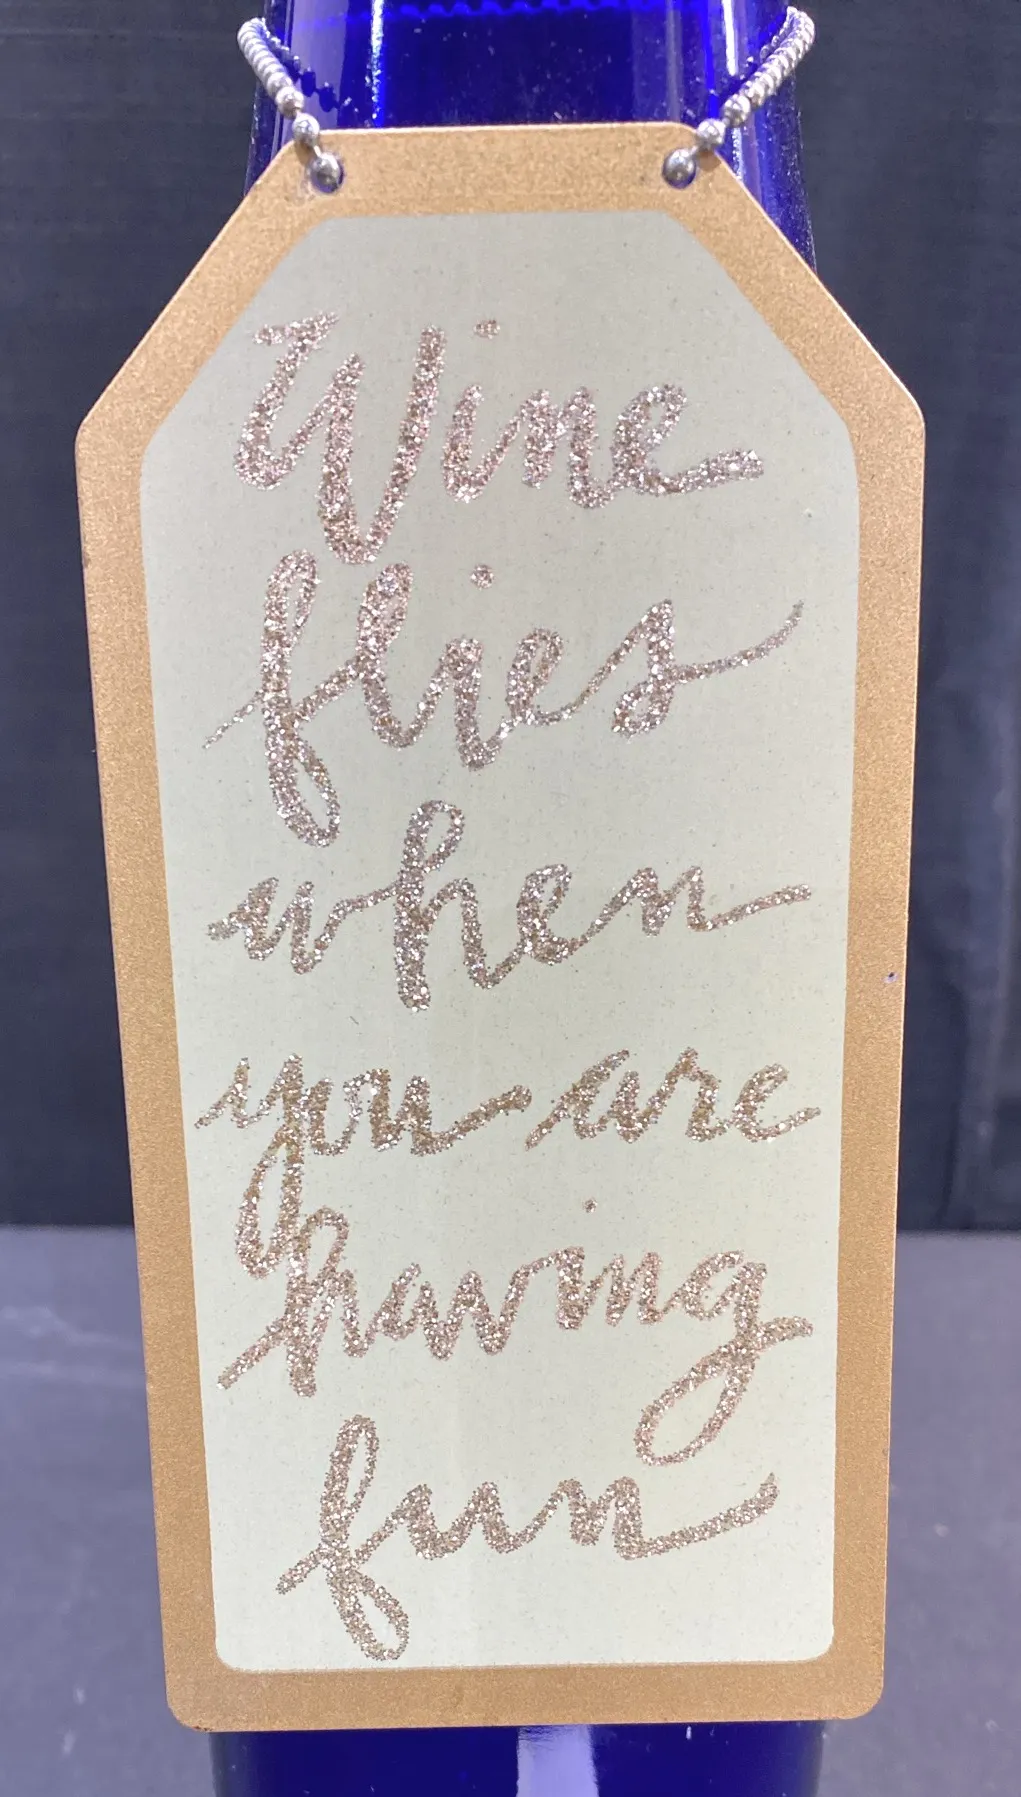 Wine
flies
when
you are
having
fun